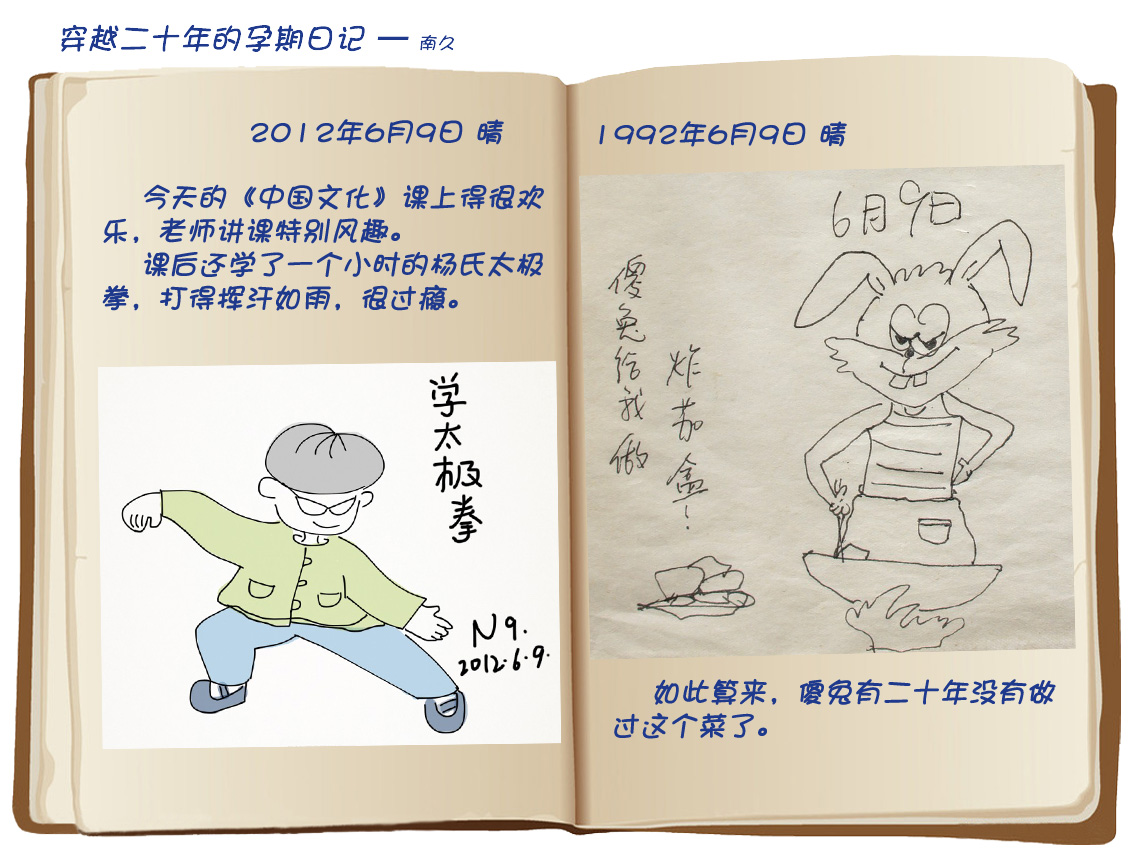 穿越二十年的孕期日记 — 南久
2012年6月9日 晴
今天的《中国文化》课上得很欢
乐，老师讲课特别风趣。
课后还学了一个小时的杨氏太极
拳，打得挥汗如雨，很过瘾。
学太极拳
N9.
2012.6.9.
1992年6月9日 晴
6月9日
傻兔给我做
炸茄盒！
如此算来，傻兔有二十年没有做
过这个菜了。